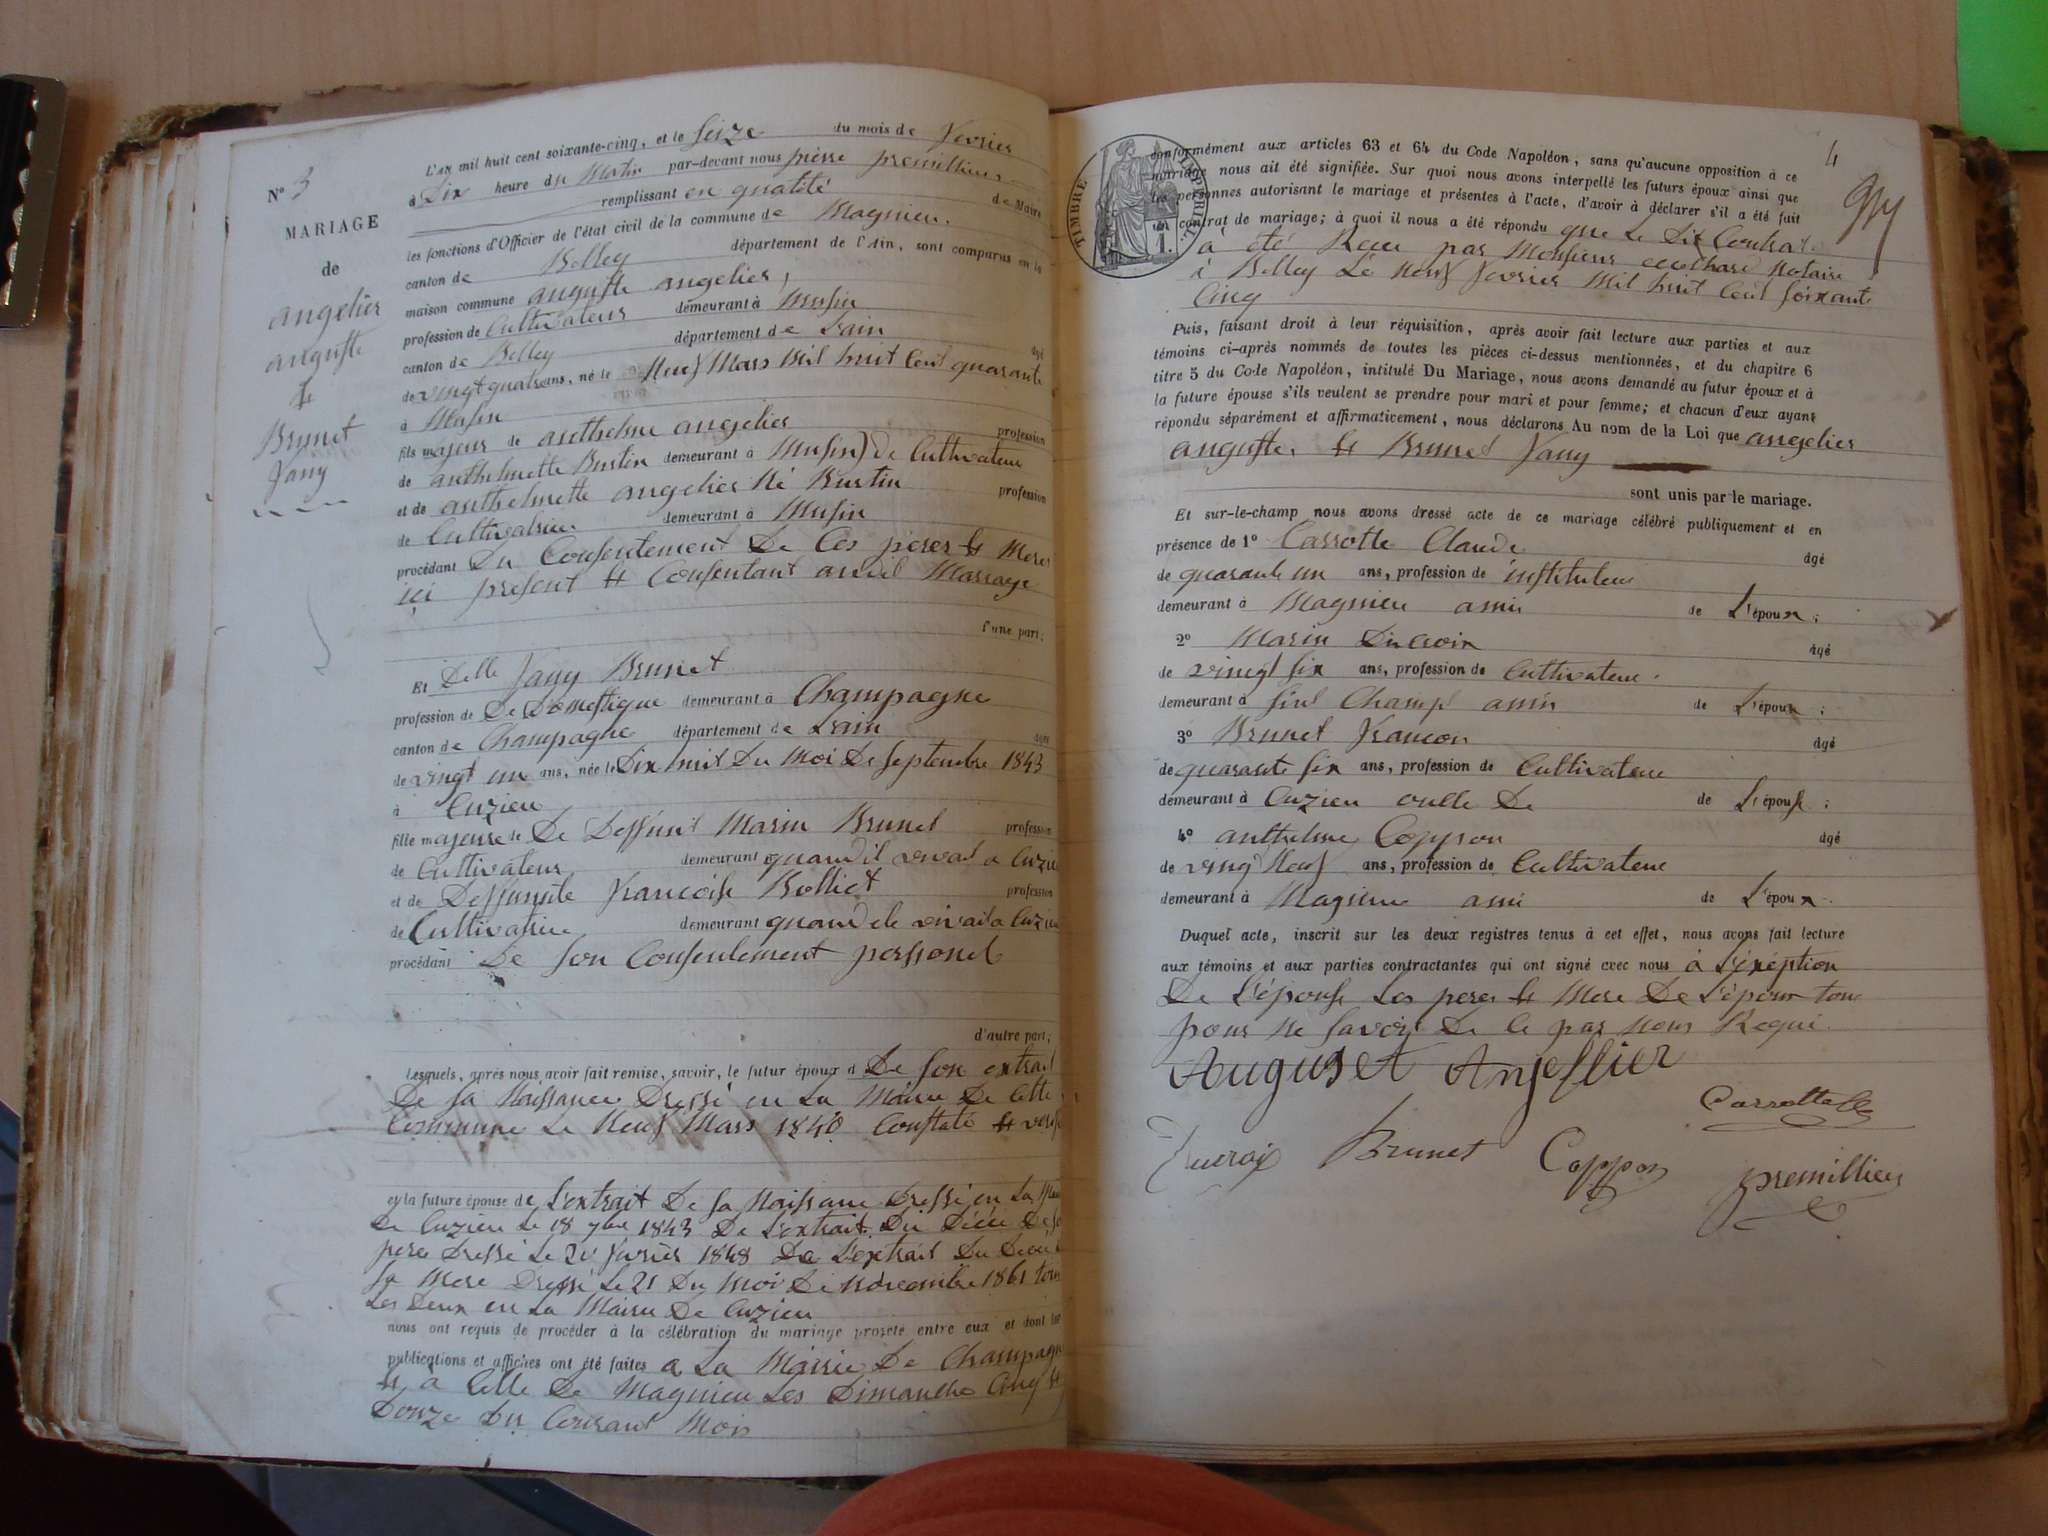 N° 3
MARIAGE
de
angelier
auguste
et
Brunet
fany
L'an mil huit cent soixante-cinq, et le seize du mois de fevrier
à Dix heure du Matin par-devant nous pierre premillieu
remplissant en qualité de Maire
les fonctions d'Officier de l'état civil de la commune de Magnieu
canton de Belley département de l'Ain, sont comparus en la
maison commune auguste angelier,
profession de Cultivateur demeurant à Musin
canton de Belley département de Lain âgé
de vingt quatre ans, né le Neuf Mars Mil huit Cent quarante
à Musin
fils majeur de anthelme angelier profession
de anthelmette Bustin demeurant à Musin) de Cultivateur
et de anthelmette angelier Né Bustin profession
de Cultivatrice demeurant à Musin
procédant Du Consentement De Ces peres et Mere
ici present et Consentant audit Marrage
d'une part;
Et Delle fany Brunet
profession de De Domestique demeurant à Champagne
canton de Champagne département de Lain âgée
de vingt un ans, née le Dix huit Du Moi De Septembre 1843
à Cuzieu
fille majeure de De Deffunt Marin Brunet profession
de Cultivateur demeurant quand il vivait a Cuzieu
et de Deffunte francoise Bolliet profession
de Cultivatrice demeurant quand ele vivait a Cuzieu
procédant De son Consentement personel
d'autre part;
Lesquels, après nous avoir fait remise, savoir, le futur époux d De son extrait
De sa Naissance Dressé en La Mairie De Cette
Commune Le Neuf Mars 1840 Constaté et
et la future épouse de L'extrait De sa Naissance Dressé en La
De Cuzieu Le 18 7bre 1843 De L'extrait Du Décée De
pere Dressé Le 20 fevrier 1848 De L'extrait Du Decé
sa Mere Dressé Le 21 Du Moi De Novembre 1861 tous
Les Deux en La Mairie De Cuzieu
nous ont requis de procéder à la célébration du mariage projeté entre eux et dont les
publications et affiches ont été faites a La Mairie De Champagne
et a Celle De Magnieu Les Dimanche Cinq et
Douze Du Courant Mois
4
TIMBRE IMPÉRIAL
1.
conformément aux articles 63 et 64 du Code Napoléon, sans qu'aucune opposition à ce
mariage nous ait été signifiée. Sur quoi nous avons interpellé les futurs époux ainsi que
les personnes autorisant le mariage et présentes à l'acte, d'avoir à déclarer s'il a été fait
un contrat de mariage; à quoi il nous a été répondu que Le Dit Contrat
a été Recu par Monsieur Notaire
à Belley Le Neuf fevrier Mil huit Cent soixante
Cinq
Puis, faisant droit à leur réquisition, après avoir fait lecture aux parties et aux
témoins ci-après nommés de toutes les pièces ci-dessus mentionnées, et du chapitre 6
titre 5 du Code Napoléon, intitulé Du Mariage, nous avons demandé au futur époux et à
la future épouse s'ils veulent se prendre pour mari et pour femme; et chacun d'eux ayant
répondu séparément et affirmativement, nous déclarons Au nom de la Loi que angelier
auguste, et Brunet fany
sont unis par le mariage.
Et sur-le-champ nous avons dressé acte de ce mariage célébré publiquement et en
présence de 1° Carrotte Claude âgé
de quarante un ans, profession de instituteur
demeurant à Magnieu amis de L'époux;
2° Marin Ducroix âgé
de vingt six ans, profession de Cultivateur
demeurant à sint Champt amis de L'époux;
3° Brunet francon âgé
de quarante six ans, profession de Cultivateur
demeurant à Cuzieu oncle De de L'épouse;
4° anthelme Coppon âgé
de ving Neuf ans, profession de Cultivateur
demeurant à Magnieu ami de L'époux.
Duquel acte, inscrit sur les deux registres tenus à cet effet, nous avons fait lecture
aux témoins et aux parties contractantes qui ont signé avec nous à L'éxéption
De L'épouse Les peres et Mere De L'époux tous
pour Ne savoir De Ce par Nous Requi
Auguset Anjellier
Carrotte Cde
Ducroix Brunet Coppon premillieu